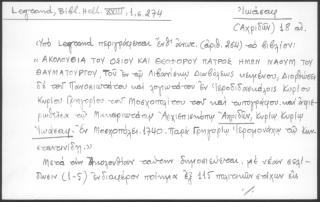 Legrand, Bibl. Hell. XVIII, 1. σ. 274
Ἰωάσαφ
(Ἀχριδῶν) 18 αἰ.
Ὑπὸ Legrand περιγράφεται ἐνθ' ἀνωτ. (ἀριθ. 264) τὸ βιβλίον:
" ΑΚΟΛΟΥΘΙΑ ΤΟΥ ΟΣΙΟΥ ΚΑΙ ΘΕΟΦΟΡΟΥ ΠΑΤΡΟΣ ΗΜΩΝ ΝΑΟΥΜ ΤΟΥ
ΘΑΥΜΑΤΟΥΡΓΟΥ, Τοῦ ἐν τῷ Λιβανίσκῳ Διαβόλεως κειμένου, Διορθώσει
δὲ τοῦ Πανοσιωτάτου καὶ λογιωτάτου ἐν Ἱεροδιδασκάλοις Κυρίου
Κυρίου Γρηγορίου τοῦ Μοσχοπολίτου τοῦ καὶ
τοῦ Μακαριωτάτου Ἀρχιεπισκόπου Ἀχριδῶν, Κυρίου Κυρίου
Ἰωάσαφ. Ἐν Μοσχοπόλει. 1740. Παρὰ Γρηγορίῳ Ἱερομονάχῳ τῷ Κων-
σταντινίδῃ."
Μετὰ τὴν Ἀκολουθίαν ταύτην δημοσιεύεται, μὲ νέαν σελί-
δωσιν (1-5) ἐνδιαφέρον ποίημα ἐξ 115 πολιτικῶν στίχων εἰς